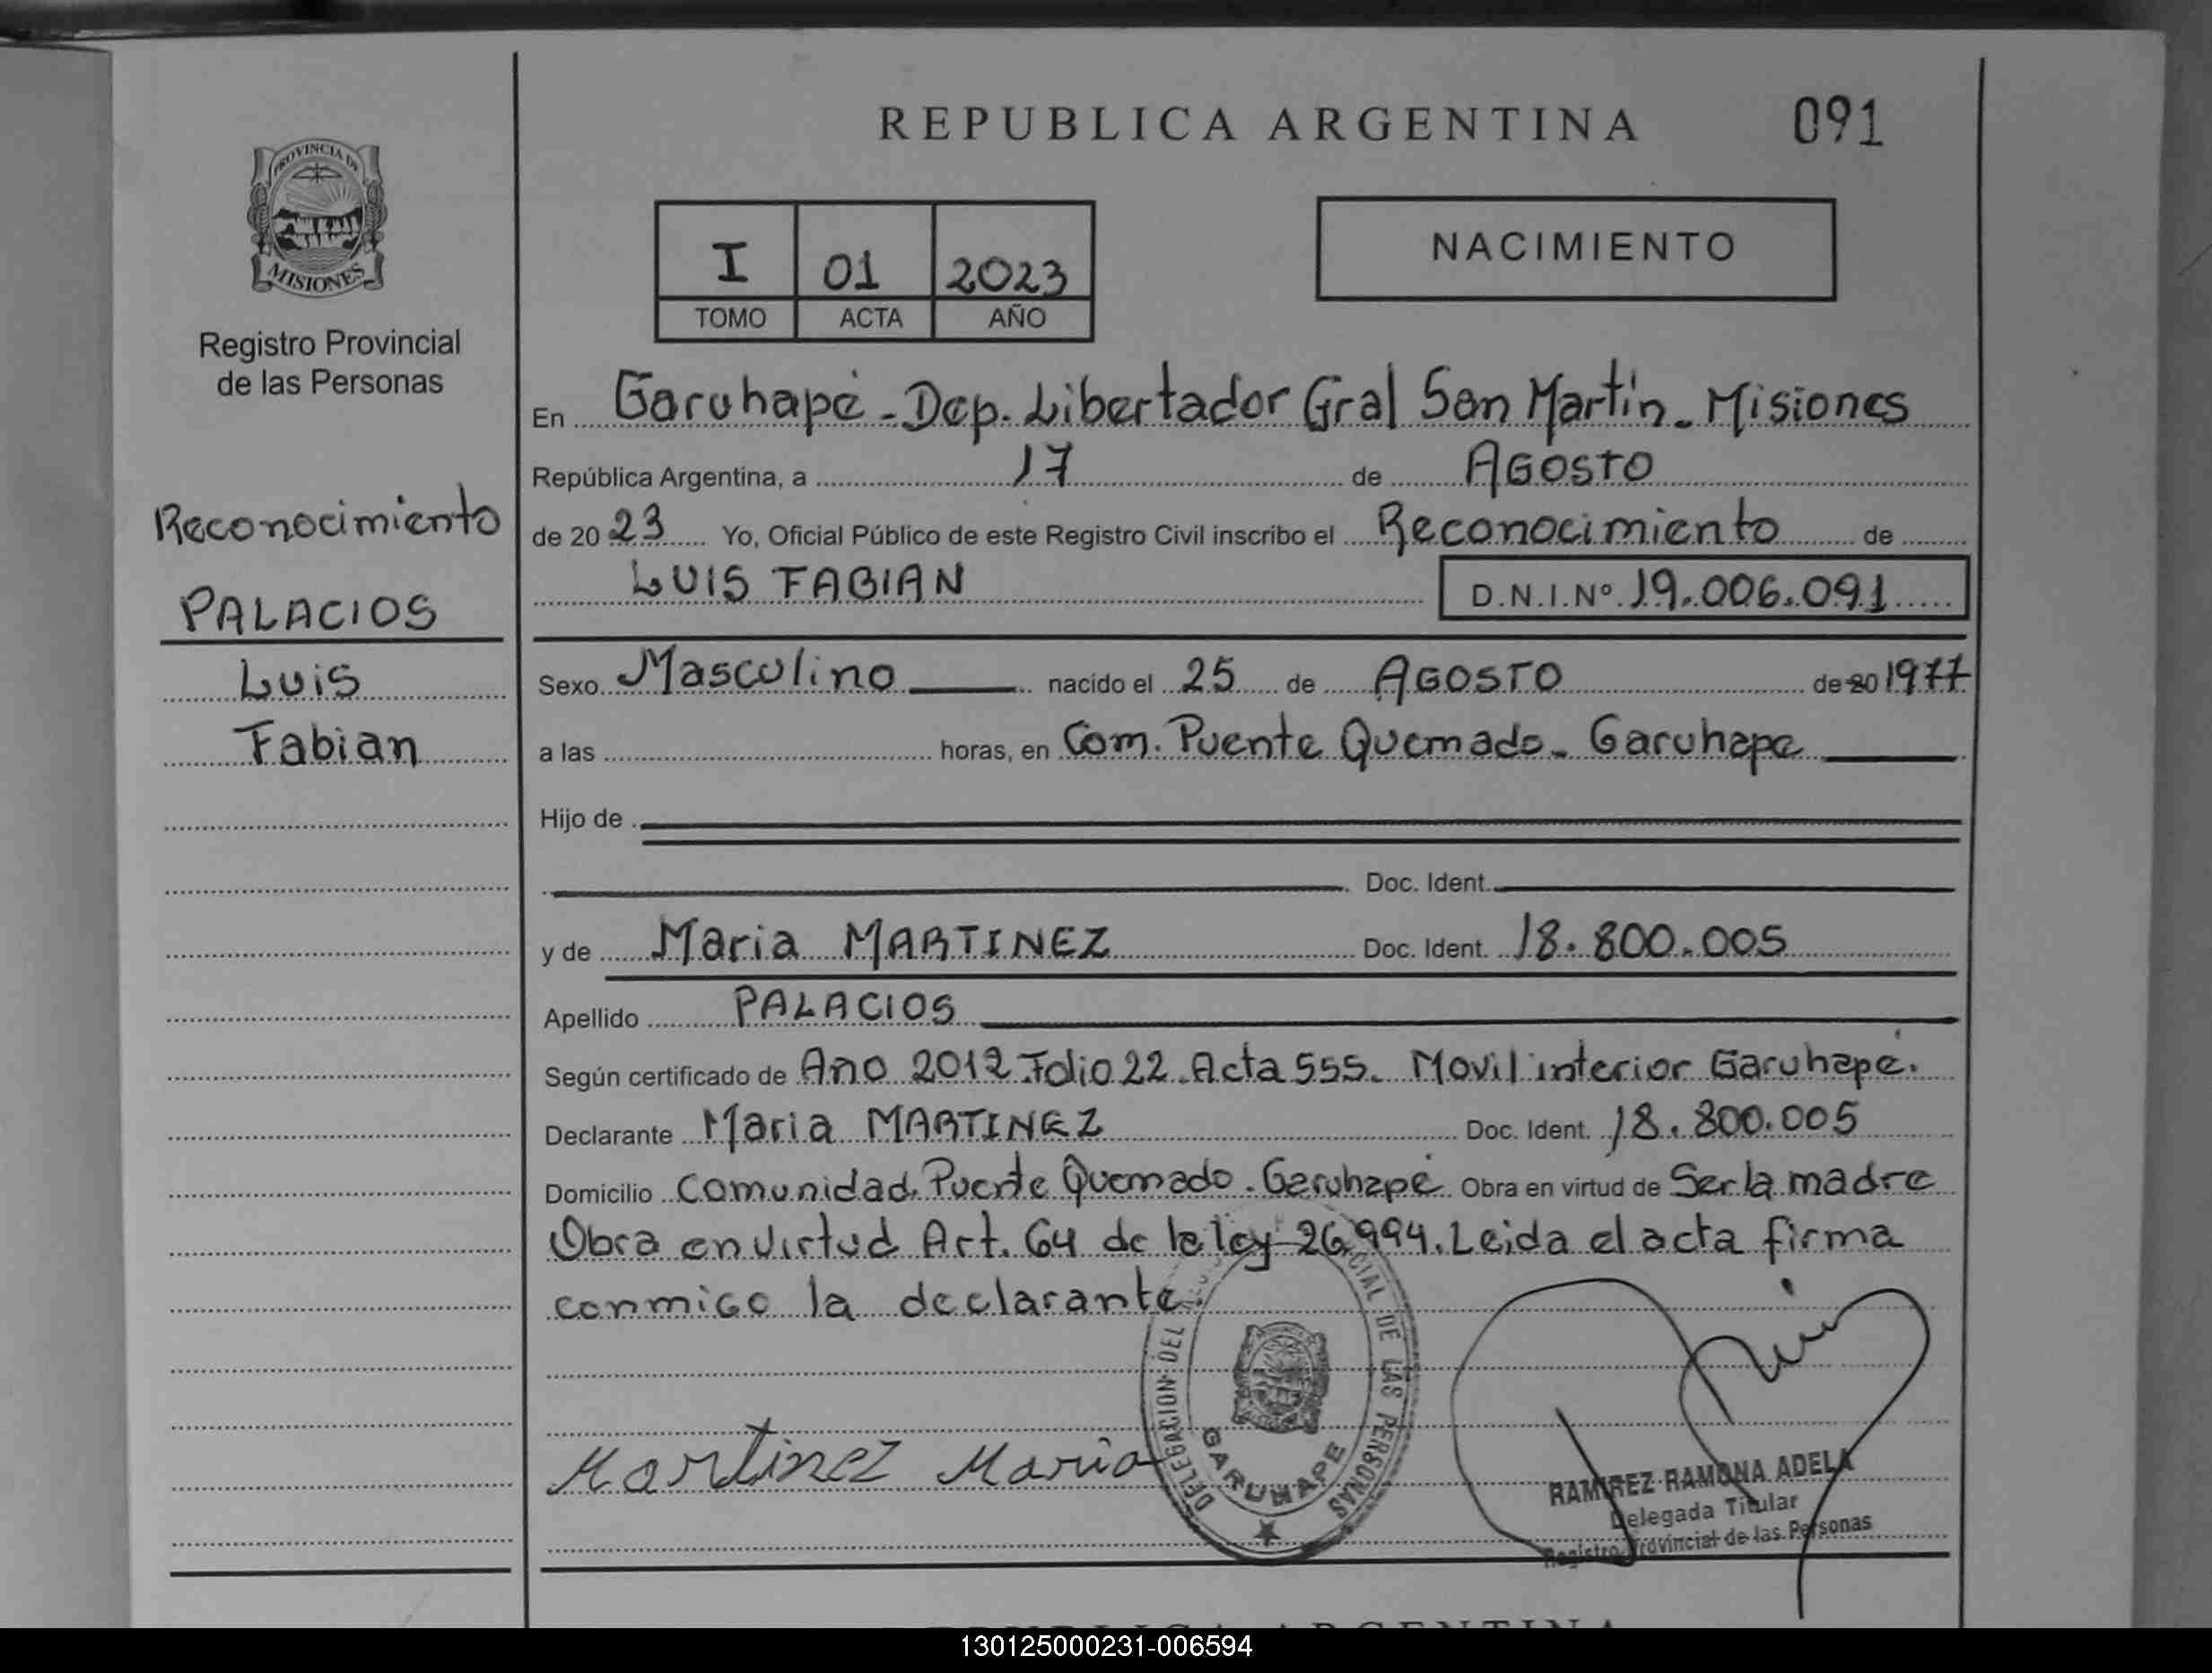 REPUBLICA ARGENTINA
091
PROVINCIA DE
MISIONES
Registro Provincial
de las Personas
Reconocimiento
PALACIOS
Luis
Fabian
I 01 2023
TOMO ACTA AÑO
NACIMIENTO
En Garuhapé - Dep. Libertador Gral San Martín - Misiones
República Argentina, a 17 de AGOSTO
de 20 23 Yo, Oficial Público de este Registro Civil inscribo el Reconocimiento de
LUIS FABIAN D.N.I.Nº 19.006.091
Sexo Masculino nacido el 25 de AGOSTO de 20 1977
a las horas, en Com. Puente Quemado - Garuhape
Hijo de
Doc. Ident.
y de Maria MARTINEZ Doc. Ident. 18.800.005
Apellido PALACIOS
Según certificado de Año 2012 Folio 22 Acta 555. Movil interior Garuhapé.
Declarante Maria MARTINEZ Doc. Ident. 18.800.005
Domicilio Comunidad Puente Quemado - Garuhapé Obra en virtud de Ser la madre
Obra en virtud Art. 64 de la ley 26.994. Leida el acta firma
conmigo la declarante.
DELEGACION DEL CIAL DE LAS PERSONAS
GARUHAPE
Martinez Maria
RAMIREZ RAMONA ADELA
Delegada Titular
Registro Provincial de las Personas
REPUBLICA ARGENTINA
130125000231-006594